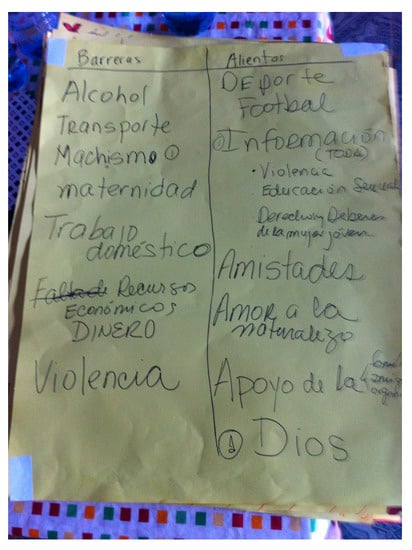 Barreras
Alcohol
Transporte
Machismo ①
maternidad
Trabajo
doméstico
Recursos
Económicos
DINERO
Violencia
Alientos
DEporte
Footbal
Información
(TODA)
• Violencia
Educación Sexual
Derechos y Deberes
de la mujer joven
Amistades
Amor a la
naturaleza
Apoyo de la
① Dios